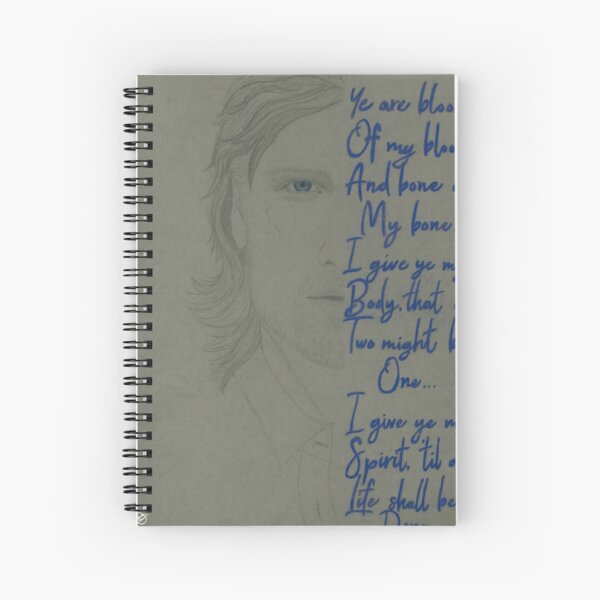 Ye are bloo
Of my bloo
And bone
My bone.
I give ye my
Body, that
Two might b
One...
I give ye m
Spirit, 'til
Life shall be